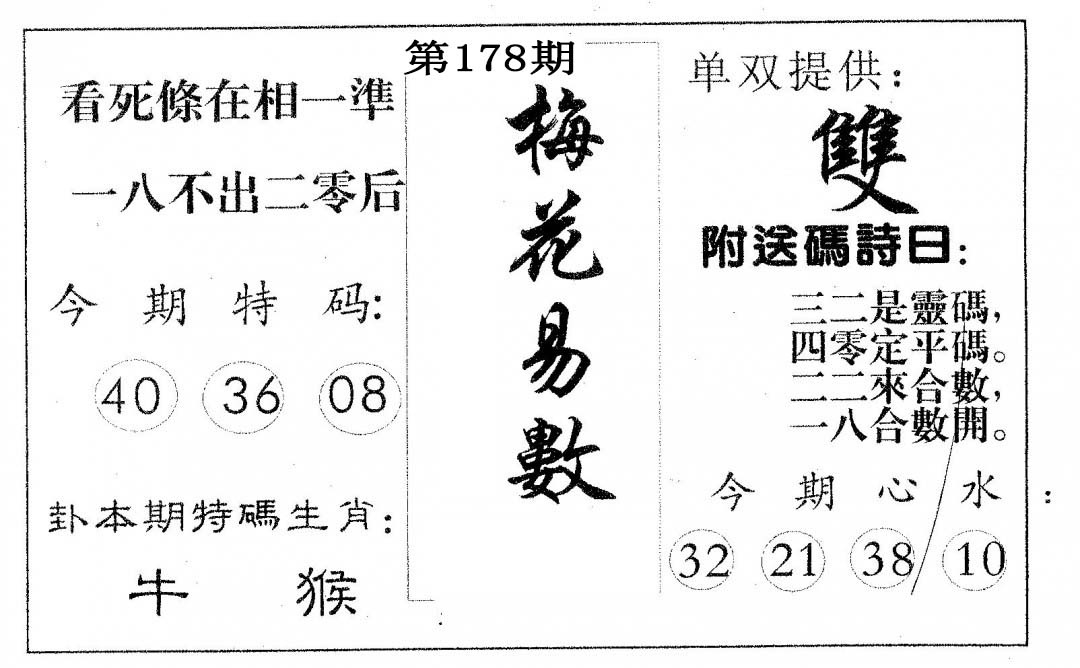 第178期
看死條在相一準
一八不出二零后
今期特码:
40 36 08
卦本期特碼生肖:
牛 猴
梅花易數
单双提供:
雙
附送碼詩曰:
三二是靈碼,
四零定平碼。
二二來合數,
一八合數開。
今期心水:
32 21 38 10